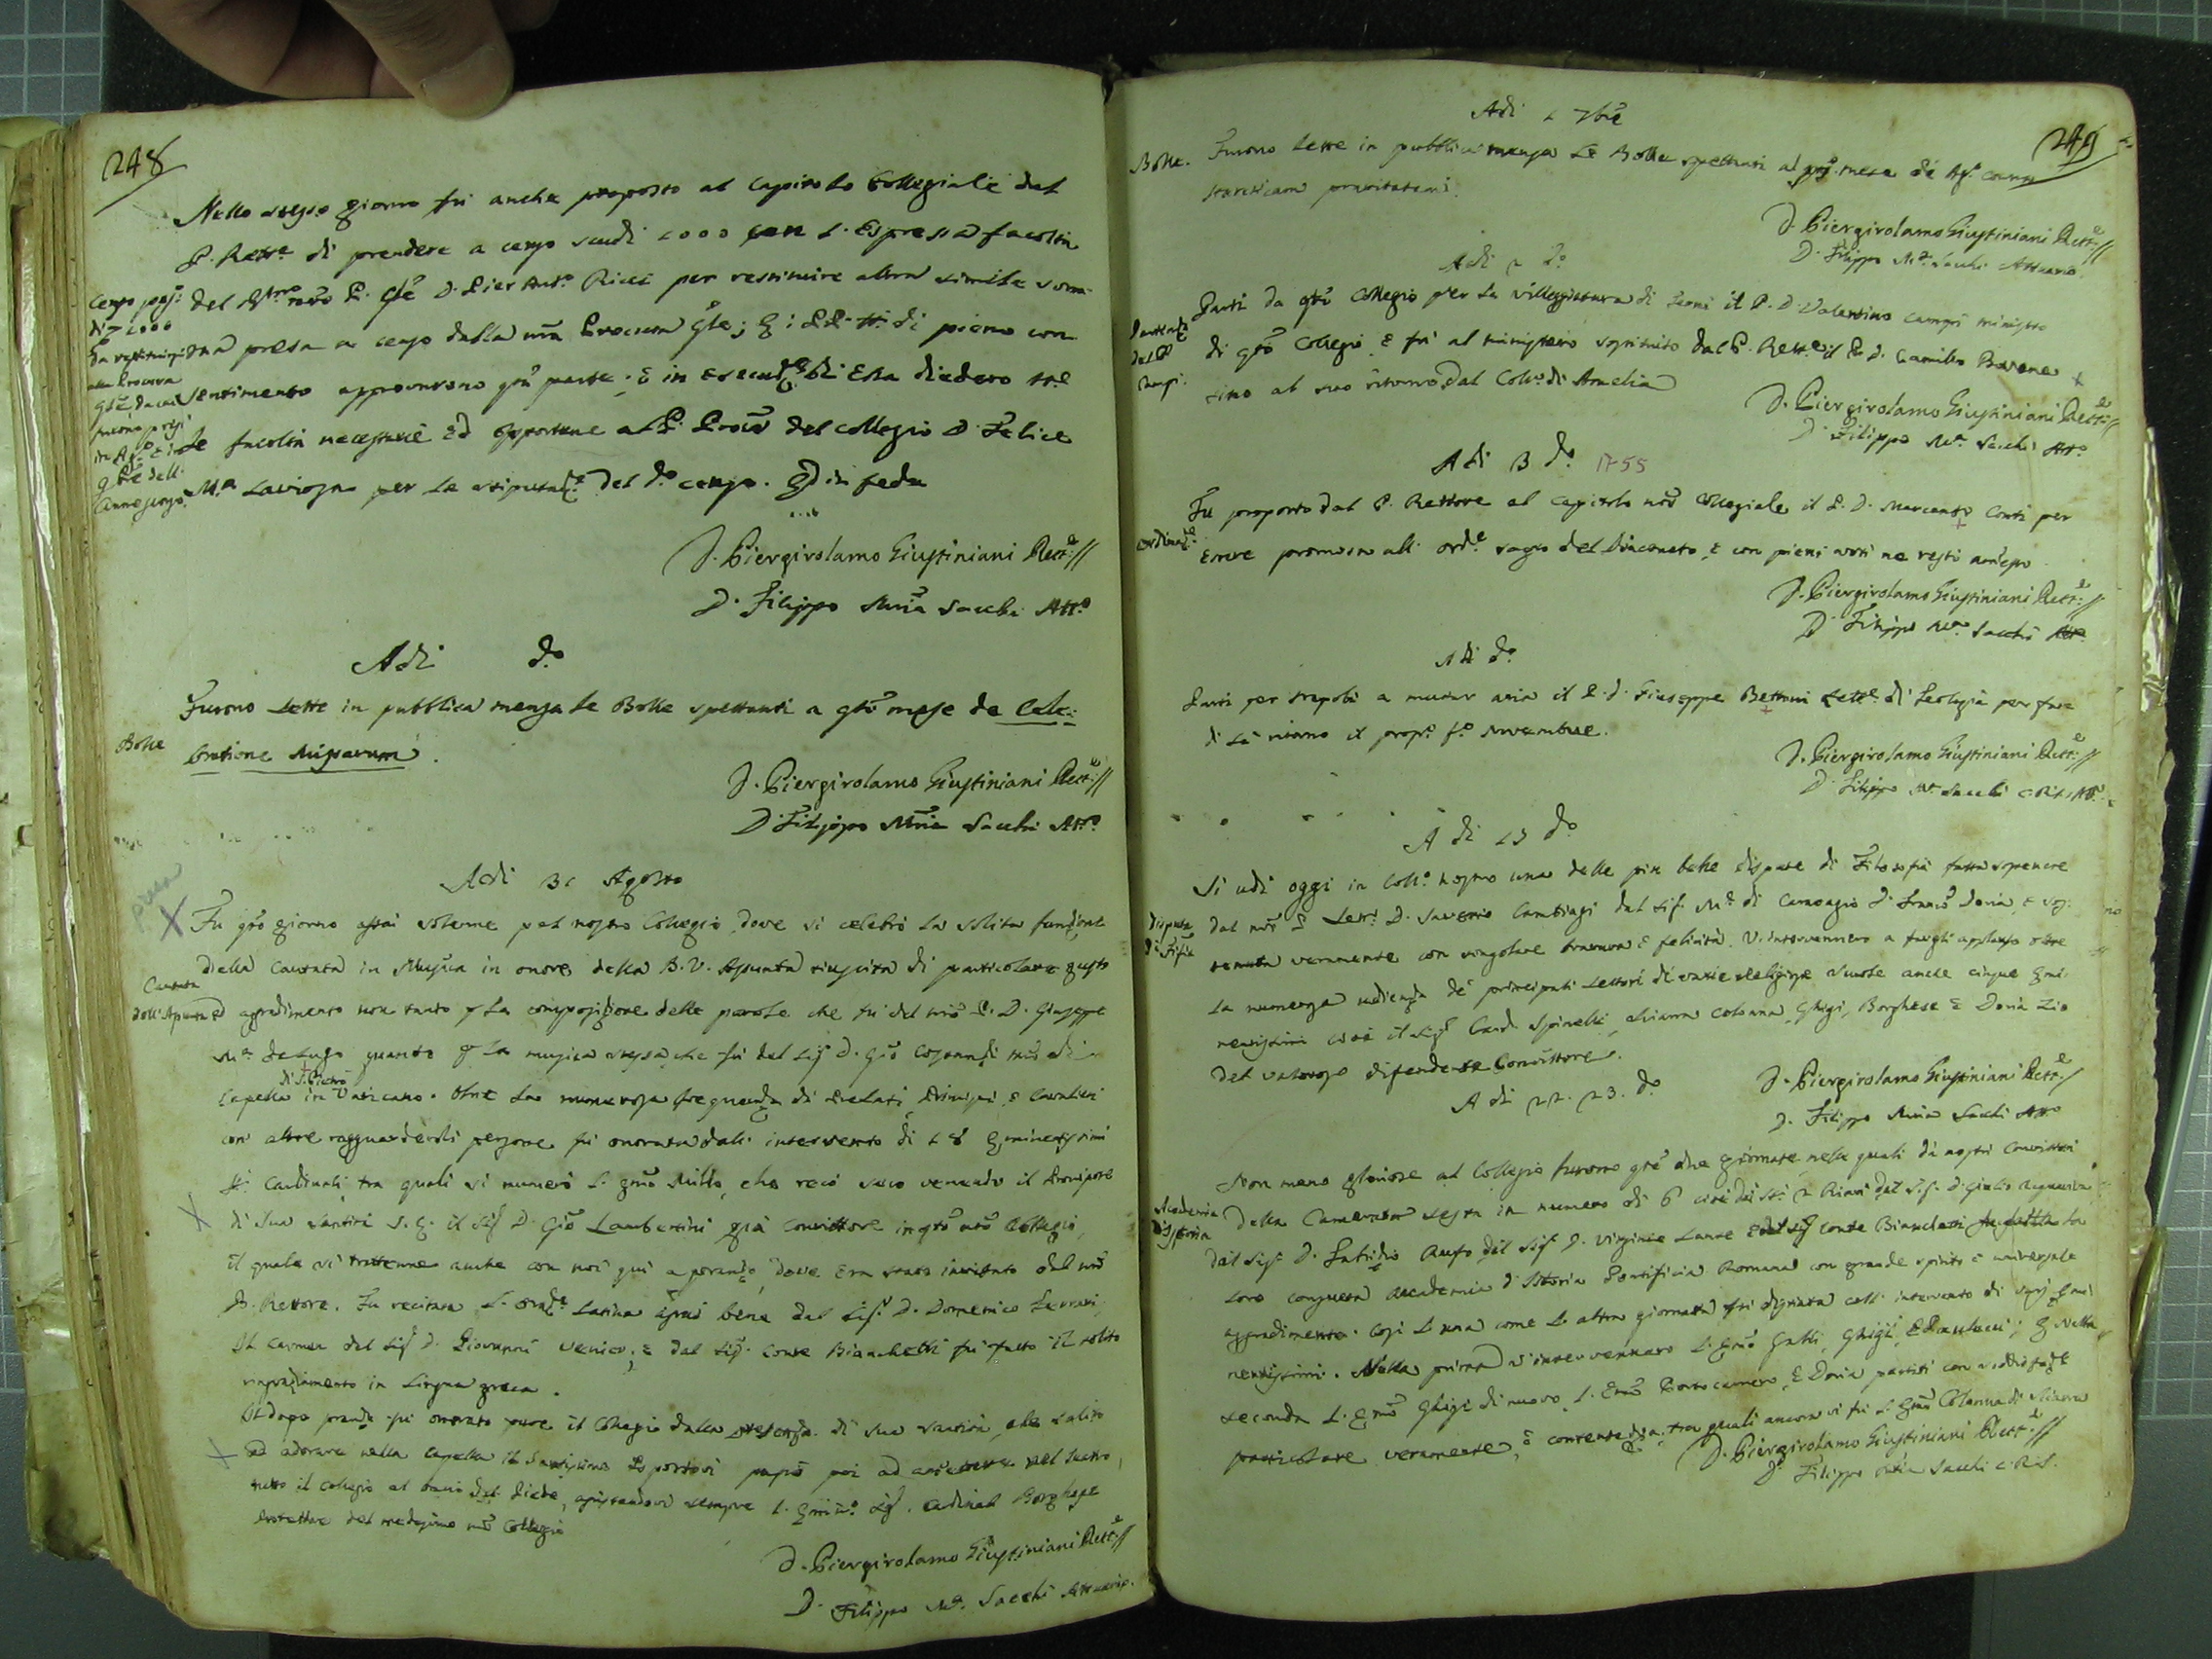 248
Nello stesso giorno fu anche proposto al Capitolo Collegiale dal
P. Rettre di prendere a censo scudi 1000 con l'espressa facoltà
del Rmo nro P. Gle D. Pier Anto Ricci per restituire altra simile som-
ma presa a censo dalla nra Procura Gle; e i PP. tti di pieno con
sentimento approvarono qta parte; e in esecuzne di essa diedero tte
le facoltà necessarie ed opportune al P. Procre del Collegio D. Felice
Ma Laviosa per la stipulazne del do censo. Et in fede
Censo preso
di 1000
da restituirsi
alla Procura
D. Piergirolamo Giustiniani Rett.e
D. Filippo Mria Sacchi Atto
Adi do
Furono lette in pubblica mensa le Bolle spettanti a qto mese de Cele-
bratione Missarum.
Bolle
D. Piergirolamo Giustiniani Rett.e
D. Filippo Mria Sacchi Atto
Adi 31 Agosto
Fu qto giorno assai solenne pel nostro Collegio, dove si celebrò la solita funzione
della Cantata in Musica in onore della B. V. Assunta riuscita di particolare gusto
Cantata
dell'Assunta
ed agradimento non tanto p la composizione delle parole che fu del nro P. D. Giuseppe
Ma de Lugo quanto p la musica stessa che fu del Sig D. Gio Costanzi mro di
Capella di S. Pietro in Vaticano. Oltre la numerosa frequenza di Prelati, Principi, e Cavalieri
con altre ragguardevoli persone fu onorata dall'intervento di 18 Eminentissimi
SS. Cardinali, tra quali si numerò l'Emo Millo, che recò seco venendo il Pronipote
di Sua Santità S. E. il Sig D. Gio Lambertini già Convittore in qto nro Collegio,
il quale si trattenne anche con noi qui a pranzo, dove era stato invitato dal nro
P. Rettore. Fu recitata l'orazne latina assai bene dal Sigr D. Domenico Ferrari,
il Carmen dal Sig D. Giovanni Venier, e dal Sigr Conte Bianchetti fu fatto il solito
ringraziamento in lingua greca.
Il dopo pranzo fu onorato pure il Collegio dalla presenza di Sua Santità, che salito
ad adorare nella Capella il Santissimo espostovi passò poi ad ammettere nel Teatro,
tutto il Collegio al bacio del Piede, assistendovi sempre l'Emmo Sigr Cardinal Borghese
Protettore del medesimo nro Collegio
D. Piergirolamo Giustiniani Rett.e
D. Filippo Ma Sacchi Attuario.
249
Adi 1 7bre
Bolle.
Furono lette in pubblica mensa le Bolle spettanti al pnte mese di Ag. contra
haereticam pravitatem.
D. Piergirolamo Giustiniani Rett.e
D. Filippo Ma Sacchi Attuario.
Adi 2 do
Partenza
del P.
Campi.
Partì da qto Collegio per la villeggiatura di Terni il P. D. Valentino Campi ministro
di qto Collegio, e fu al ministero sostituito dal P. Rettre il P. D. Camillo Bovone
sino al suo ritorno dal Collo di Amelia
D. Piergirolamo Giustiniani Rett.e
D. Filippo Ma Sacchi Atto
Adi 3 do 1755
Fu proposto dal P. Rettore al Capitolo nro Collegiale il P. D. Marcanto Conti per
essere promosso all'ordne sagro del Diaconato, e con pieni voti ne restò ammesso.
Ordinazne
D. Piergirolamo Giustiniani Rett.e
D. Filippo Ma Sacchi Atto
Adi do
Partì per Napoli a mutar aria il P. D. Giuseppe Bettoni Lettre di Teologia per fare
di là ritorno il prossº Novembre.
D. Piergirolamo Giustiniani Rett.e
D. Filippo Ma Sacchi C.R.S. Atto
A di 15 do
Si udì oggi in Collo nostro una delle più belle dispute di Filosofia fatta sostenere
Disputa
di Filfia
dal nro P. Lettr D. Saverio Cambiagi dal Sig. Me di Caravagio D. Franco Doria, e sos-
tenuta veramente con singolare bravura e felicità. V'intervennero a fargli applauso oltre
la numerosa udienza de' principali lettori di varie religiose scuole anche cinque Emi-
nentissimi cioè il Sigr Card. Spinelli, Sciarra Colonna, Ghigi, Borghese e Doria zio
del valoroso difendente Convittore.
D. Piergirolamo Giustiniani Rett.e
D. Filippo Mria Sacchi Atto
A di 22. 23. do
Non meno gloriose al Collegio furono qte due giornate nelle quali da nostri Convittori
Academia
d'Istoria
della Camerata sesta in numero di 6 cioè dai SSri 2 Riarj dal Sigr D. Giulio Acquaviva,
dal Sigr D. Fabrizio Ruffo, dal Sigr D. Virginio Lante e dal Sig Conte Bianchetti fu fatta la
loro consueta Accademia d'Istoria Pontificia Romana con grande spirito e universale
aggradimento. Così l'una come l'altra giornata fu degnata coll'intervento di varj Emi-
nentissimi. Nella prima v'intervennero l'Emo Galli, Ghigi, e Paulucci; e nella
seconda l'Emo Ghigi di nuovo, l'Emo Portocarrero, e Doria partiti con soddisfazne
particolare veramente, e contentezza, tra quali ancora vi fu l'Emo Colonna di Sciarra
D. Piergirolamo Giustiniani Rett.e
D. Filippo Mria Sacchi C.R.S.